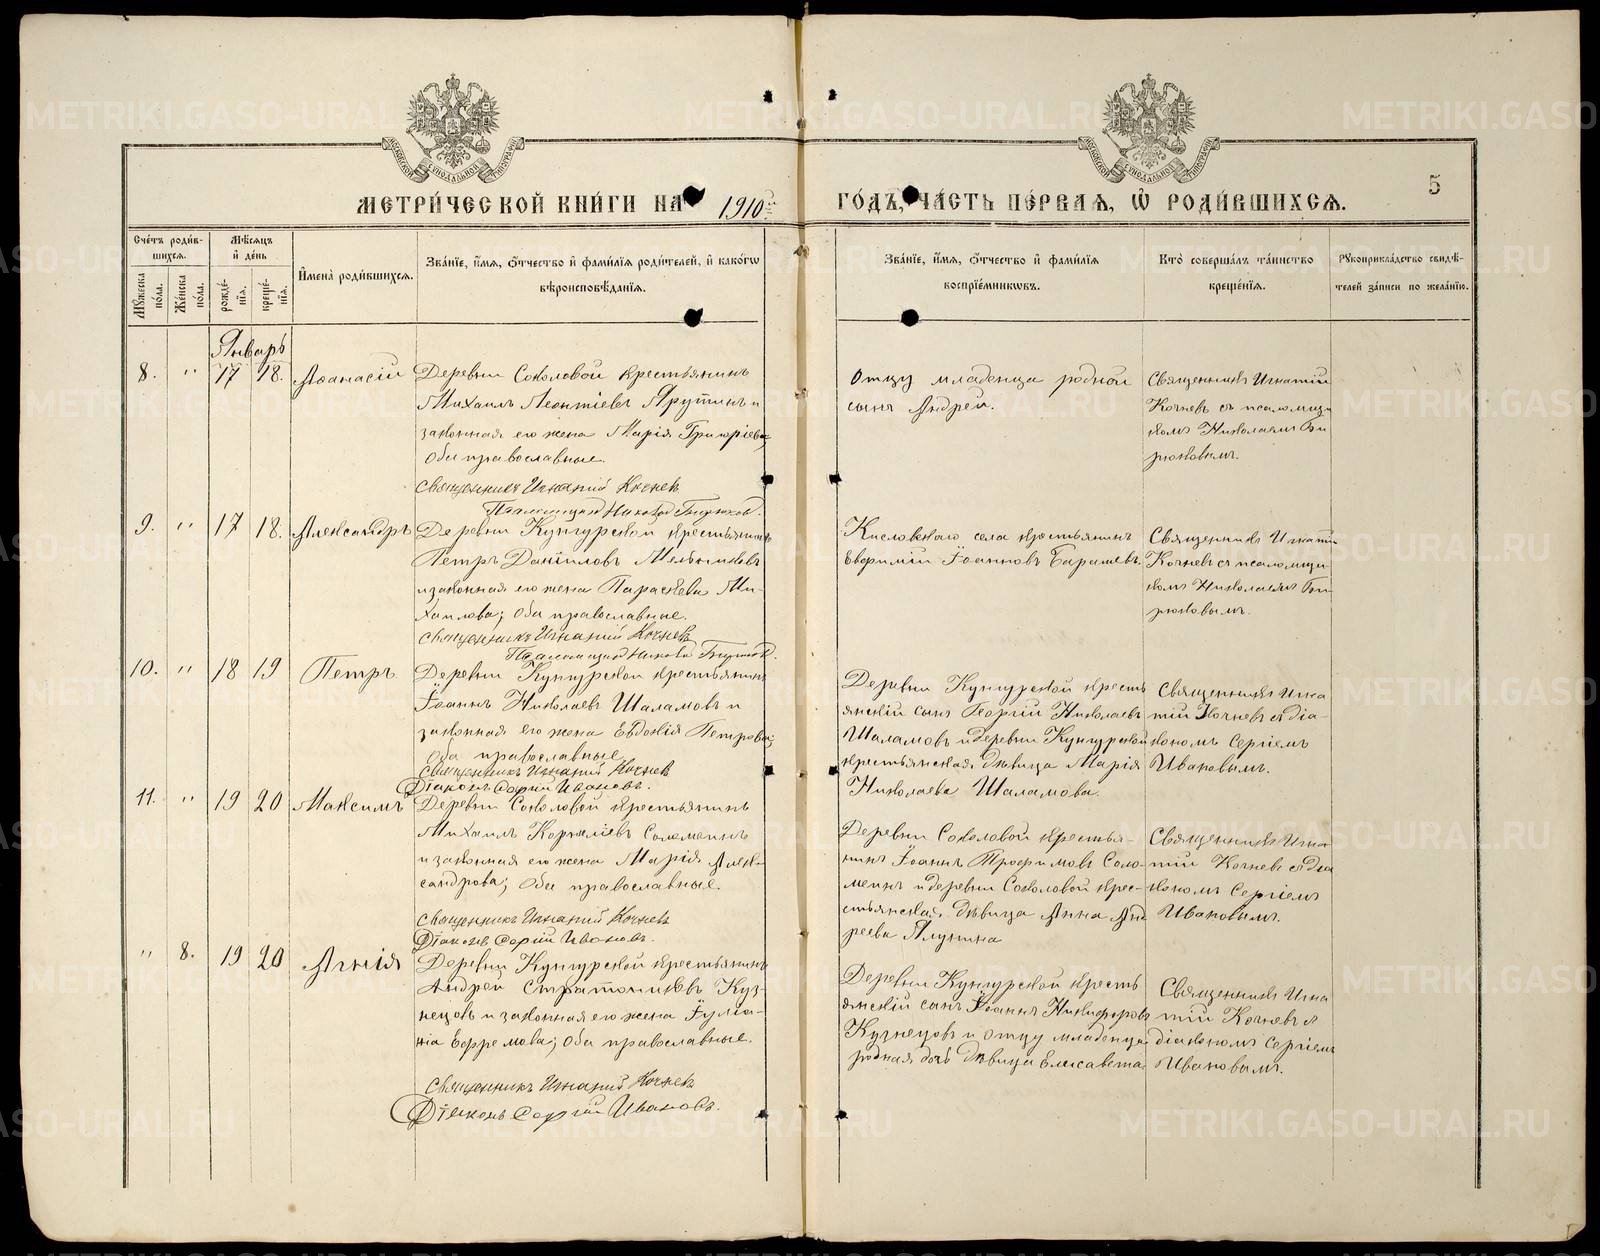 МЕТРИ́ЧЕСКОЙ КНИ́ГИ НА 1910й
ГО́ДЪ, ЧА́СТЬ ПЕ́РВАЯ, Ѡ҆ РОДИ́ВШИХСЯ.
5
Сче́тъ роди́в-
шихся.
Му́жеска
по́ла.
Же́нска
по́ла.
Мѣ́сяцъ
и҆ де́нь
рожде́-
нїя.
креще́-
нїя.
И҆мена̀ роди́вшихся.
Зва́нїе, и҆́мя, ѻ҆́тчество и҆ фами́лїя роди́телей, и҆ како́гѡ
вѣроисповѣ́данїя.
Зва́нїе, и҆́мя, ѻ҆́тчество и҆ фами́лїя
воспрїе́мникѡвъ.
Кто̀ соверша́лъ та́инство
креще́нїя.
Рꙋкоприкла́дство свидѣ́-
телей за́писи по жела́нїю.
Январь
8. " 17 18. Аѳанасій
Деревни Соколовой крестьянинъ
Михаилъ Леонтіевъ Ярутинъ и
законная его жена Марія Григоріева;
Оба православные.
Священникъ Игнатій Кочневъ
Псаломщикъ Николай Бирюков.
Отцу младенца родной
сынъ Андрей.
Священникъ Игнатій
Кочневъ съ псаломщи-
комъ Николаемъ Би
рюковымъ.
9. " 17 18. Александръ
Деревни Кунгурской крестьянинъ
Петръ Даніиловъ Мельниковъ
и законная его жена Параскева Ми-
хаилова; Оба православные.
Священникъ Игнатій Кочневъ
Псаломщикъ Николай Бирюков.
Кисловскаго села крестьянинъ
Евѳимій Іоанновъ Барашевъ.
Священникъ Игнатій
Кочневъ съ псаломщи-
комъ Николаемъ Би-
рюковымъ.
10. " 18 19 Петръ
Деревни Кунгурской крестьянинъ
Іоаннъ Николаевъ Шаламовъ и
законная его жена Евдокія Петрова;
Оба православные
Священникъ Игнатій Кочнев
Діаконъ Сергій Ивановъ.
Деревни Кунгурской кресть
янскій сынъ Георгій Николаевъ
Шаламовъ и деревни Кунгурской
крестьянская дѣвица Марія
Николаева Шаламова.
Священникъ Игна
тій Кочневъ съ діа-
кономъ Сергіемъ
Ивановымъ.
11. " 19 20 Максимъ
Деревни Соколовой крестьянинъ
Михаилъ Корниліевъ Соломеинъ
и законная его жена Марія Алек-
сандрова; Оба православные.
Священникъ Игнатій Кочневъ
Діаконъ Сергій Ивановъ.
Деревни Соколовой крестья-
нинъ Іоаннъ Трофимовъ Соло-
меинъ и деревни Соколовой крес-
тьянская дѣвица Анна Анд
реева Ялунина
Священникъ Игна
тій Кочневъ съ діа
кономъ Сергіемъ
Ивановымъ.
" 8. 19 20 Агнія
Деревни Кунгурской крестьянинъ
Андрей Стратониковъ Куз-
нецовъ и законная его жена Іуліа-
нія Ефремова; Оба православные.
Священникъ Игнатій Кочневъ
Діаконъ Сергій Ивановъ.
Деревни Кунгурской кресть
янскій сынъ Іоаннъ Никифоровъ
Кузнецовъ и отцу младенца
родная дочь дѣвица Елисавета
Священникъ Игна
тій Кочневъ съ
діакономъ Сергіемъ
Ивановымъ.
METRIKI.GASO-URAL.RU